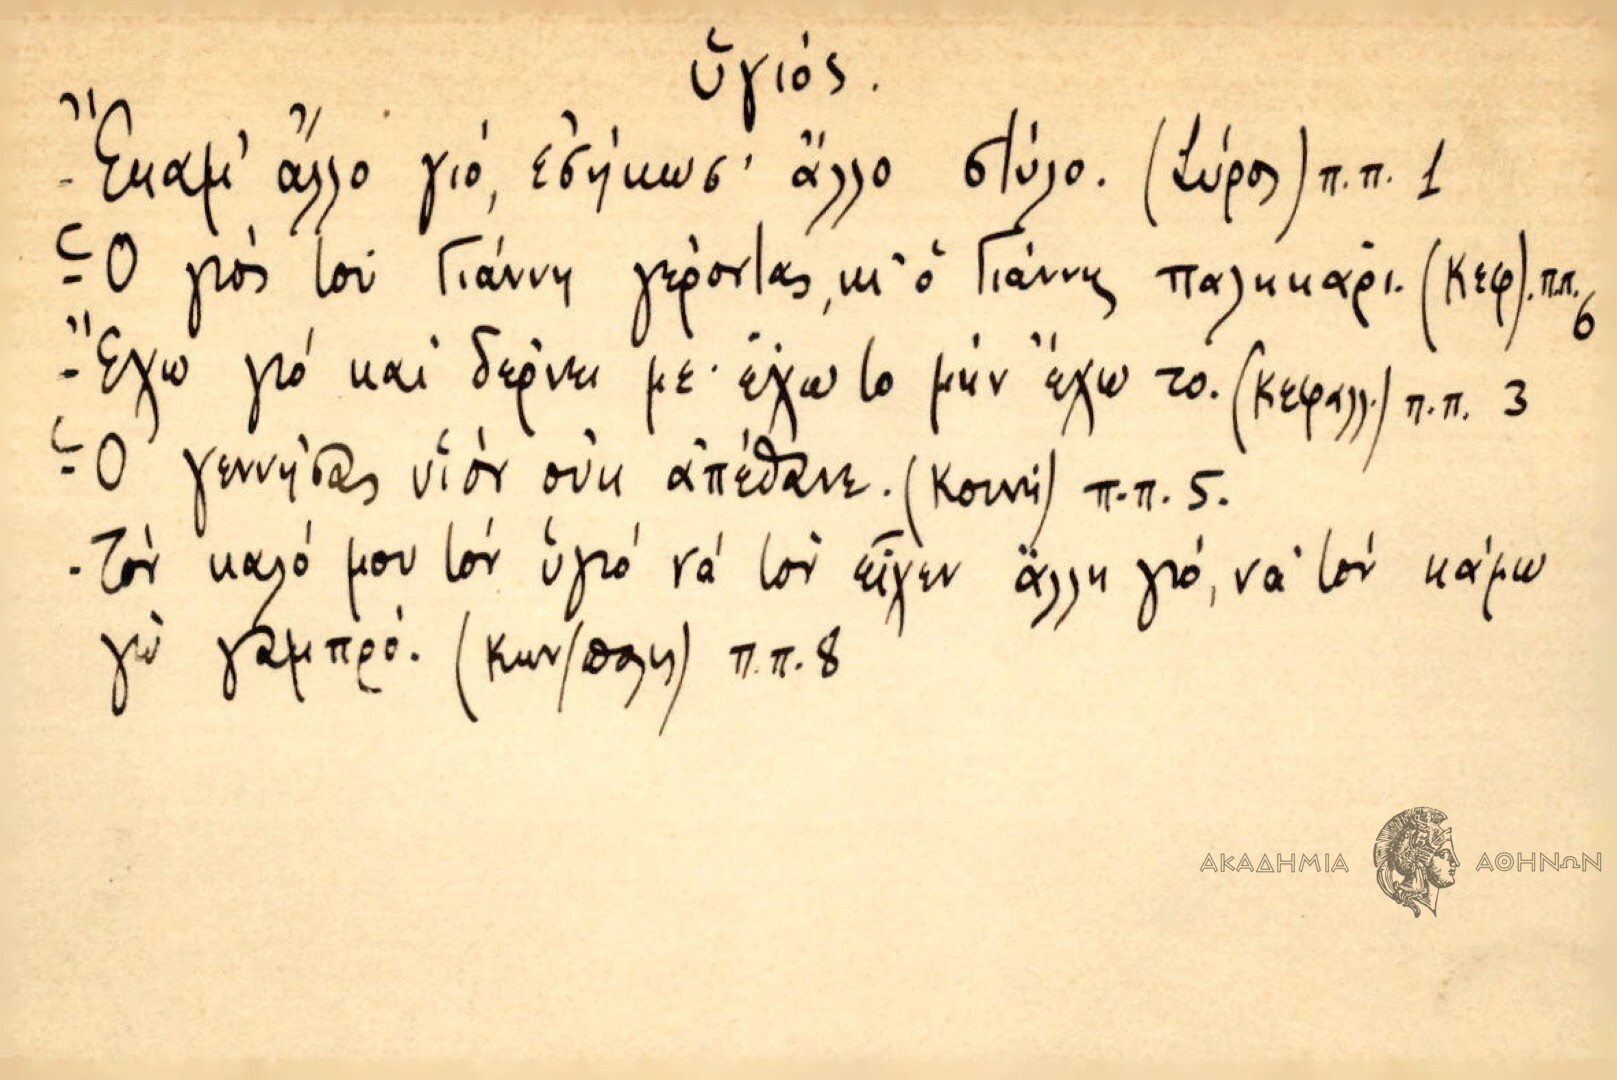 ὑγιός.
- Ἔκαμ' ἄλλο γιό, ἐσήκωσ' ἄλλο στύλο. (Σύρος) π.π. 1
- Ὁ γιός τοῦ Γιάννη γέροντας, κι' ὁ Γιάννης παλικάρι. (Κεφ). π.π. 6
- Ἔχω γιό καί δέρνει με· ἔχω το μήν ἔχω το. (Κεφαλλ.) π.π. 3
- Ὁ γεννήσας υἱόν οὐκ ἀπέθανε. (Κοινή) π.π. 5.
- Τόν καλό μου τόν ὑγιό νά τόν εἶχεν ἄλλη γιό, νά τόν κάμω
γώ γαμπρό. (Κων/πολις) π.π. 8
ΑΚΑΔΗΜΙΑ ΑΘΗΝΩΝ